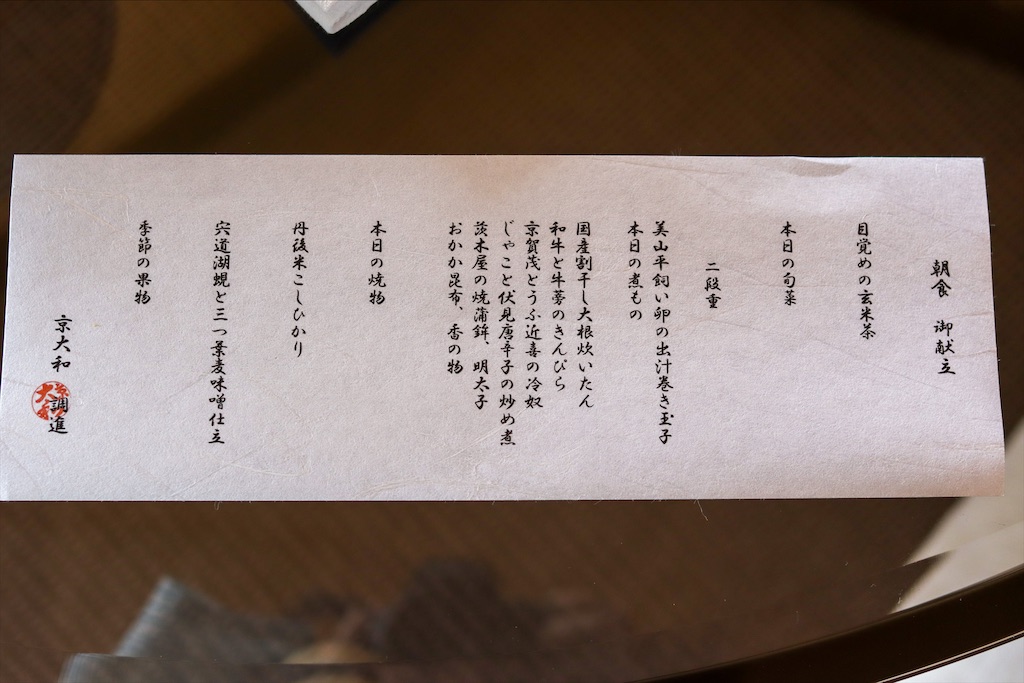 朝食　御献立
目覚めの玄米茶
本日の旬菜
二段重
美山平飼い卵の出汁巻き玉子
本日の煮もの
国産割干し大根炊いたん
和牛と牛蒡のきんぴら
京賀茂とうふ近喜の冷奴
じゃこと伏見唐辛子の炒め煮
茨木屋の焼蒲鉾、明太子
おかか昆布、香の物
本日の焼物
丹後米こしひかり
宍道湖蜆と三つ葉麦味噌仕立
季節の果物
京大和
調進